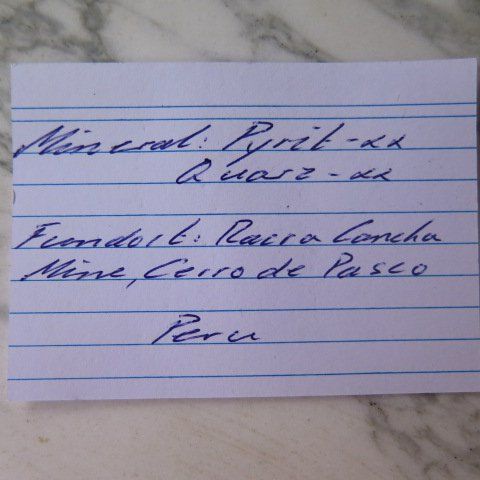 Mineral: Pyrit-xx
Quarz-xx
Fundort: Racra Concha
Mine, Cerro de Pasco
Peru